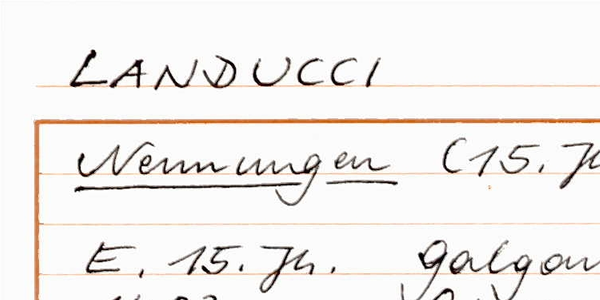 LANDUCCI
Nennungen (15. Jh
E. 15. Jh. galgan